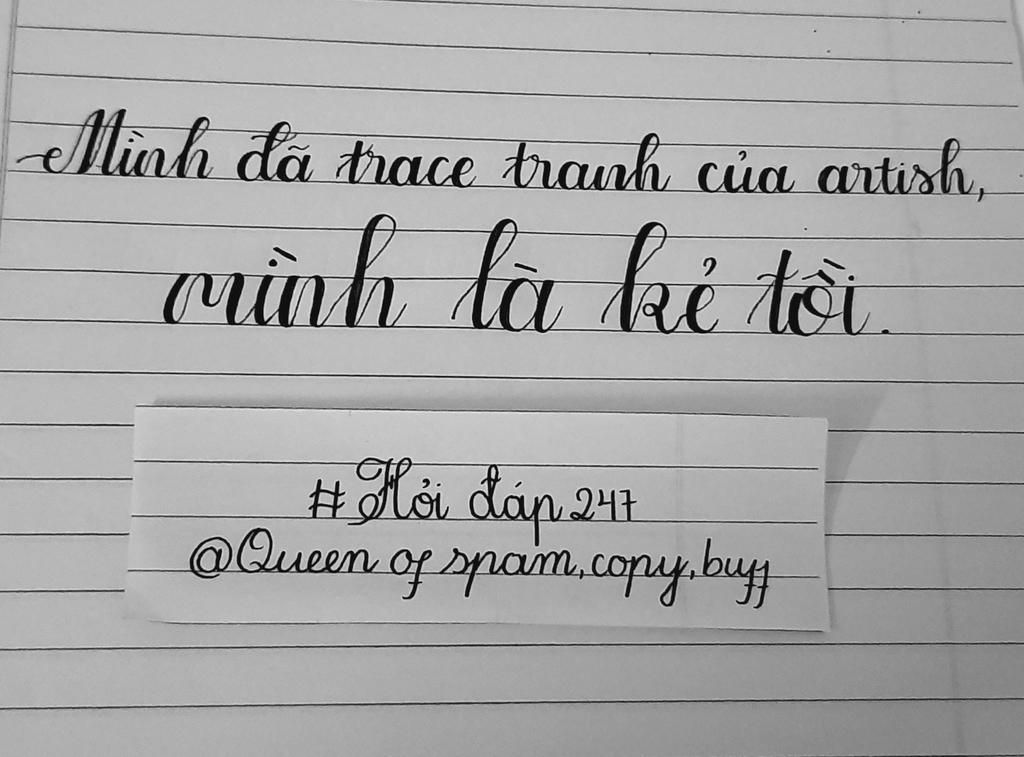 Mình đã trace tranh của artish,
mình là kẻ tồi.
#Hỏi đáp 247
@Queen of spam, copy, buff